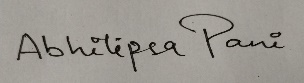 Abhilipsa Pani